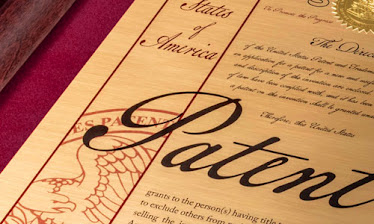 States of
America
To Promote the Progress
The Director
of the United States Patent and Trademark
application for a patent for a new and
and description of the invention are enclosed
of law have been complied with, and it has been
a patent on the invention shall be granted under
Therefore, this United States
Patent
ES PATENT
grants to the person(s) having title
to exclude others from
selling the